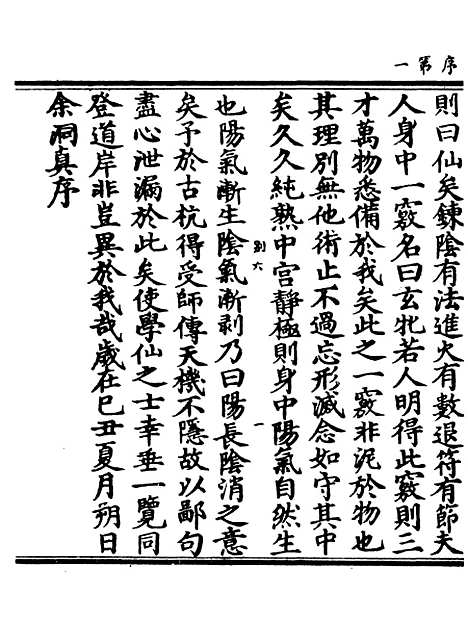 序第一
則曰仙矣鍊陰有法進火有數退符有節夫
人身中一竅名曰玄牝若人明得此竅則三
才萬物悉備於我矣此之一竅非泥於物也
其理別無他術止不過忘形滅念如守其中
矣久久純熟中宫靜極則身中陽氣自然生
别六 一
也陽氣漸生陰氣漸剥乃曰陽長陰消之意
矣予於古杭得受師傳天機不隱故以鄙句
盡心泄漏於此矣使學仙之士幸垂一覽同
登道岸非豈異於我哉歲在己丑夏月朔日
余洞真序